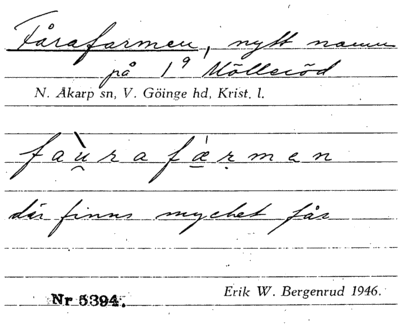 Fårafarmen, nytt namn
på 1⁹ Mölleröd
N. Åkarp sn, V. Göinge hd, Krist. l.
faù̯rafǽ̠ṛmen
där finns mycket får
Nr 5394.
Erik W. Bergenrud 1946.